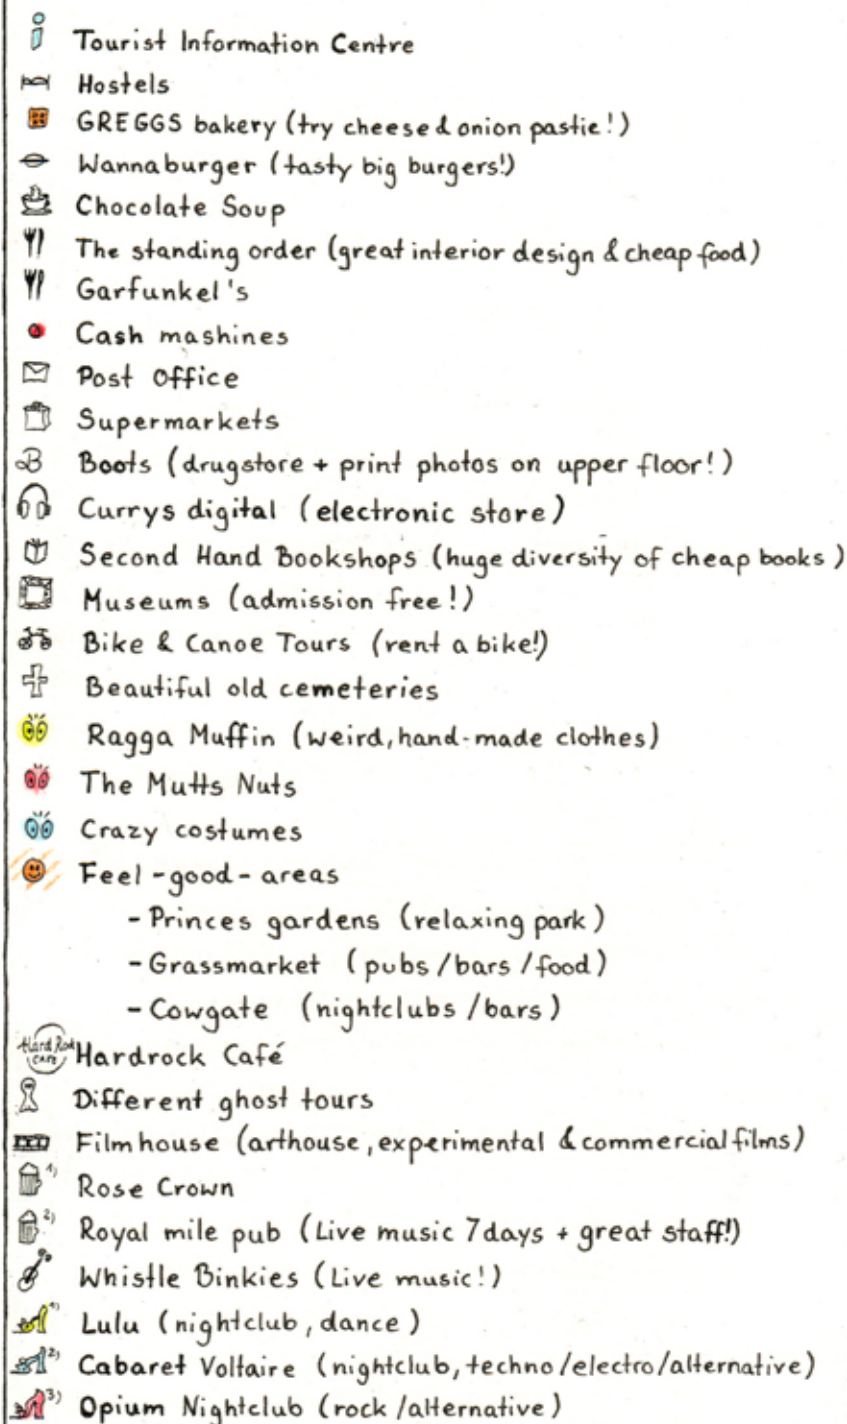 i Tourist Information Centre
Hostels
GREGGS bakery (try cheese & onion pastie!)
Wannaburger (tasty big burgers!)
Chocolate Soup
The standing order (great interior design & cheap food)
Garfunkel's
Cash mashines
Post Office
Supermarkets
B Boots (drugstore + print photos on upper floor!)
Currys digital (electronic store)
Second Hand Bookshops (huge diversity of cheap books)
Museums (admission free!)
Bike & Canoe Tours (rent a bike!)
Beautiful old cemeteries
Ragga Muffin (weird, hand-made clothes)
The Mutts Nuts
Crazy costumes
Feel-good-areas
- Princes gardens (relaxing park)
- Grassmarket (pubs/bars/food)
- Cowgate (nightclubs/bars)
Hard Rock CAFE Hardrock Café
Different ghost tours
Filmhouse (arthouse, experimental & commercial films)
1) Rose Crown
2) Royal mile pub (Live music 7 days + great staff!)
Whistle Binkies (Live music!)
1) Lulu (nightclub, dance)
2) Cabaret Voltaire (nightclub, techno/electro/alternative)
3) Opium Nightclub (rock/alternative)